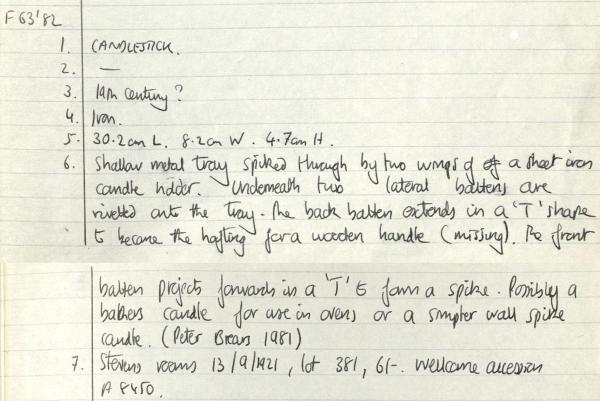 F63'82
1. CANDLESTICK.
2. —
3. 19th century?
4. Iron.
5. 30.2cm L. 8.2cm W. 4.7cm H.
6. Shallow metal tray spiked through by two wings of a sheet iron
candle holder. Underneath two lateral battens are
rivetted onto the tray. The back batten extends in a 'T' shape
to become the hafting for a wooden handle (missing). The front
batten projects forwards in a 'T' to form a spike. Possibly a
bakers candle for use in ovens or a simpler wall spike
candle. (Peter Brears 1981)
7. Stevens rooms 13/9/1921, lot 381, 6/-. Wellcome accession
A 8450.